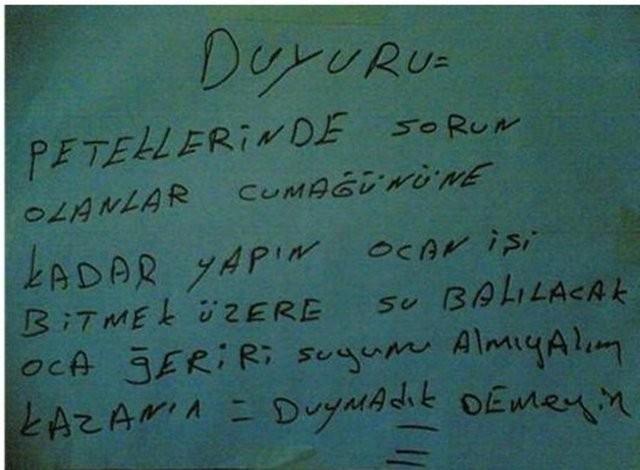 DUYURU=
PETEKLERİNDE SORUN
OLANLAR CUMAĞÜNÜNE
KADAR YAPIN OCAN İŞİ
BİTMEK ÜZERE SU BALILACAK
OCA ĞERİRİ suyunu AlmıyAlım
KAZANIN = DUYMAdık DEmeyin